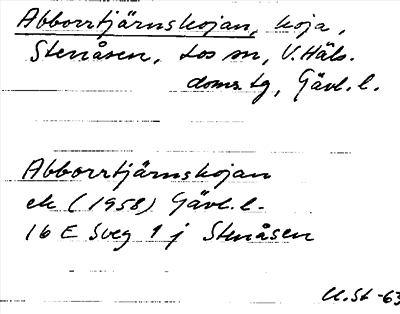 Abborrtjärnskojan, koja,
Stenåsen, Los sn, V. Häls.
doms. tg, Gävl. l.
Abborrtjärnskojan
ek (1958) Gävl. l.
16 E Sveg 1 j Stenåsen
U.St -63